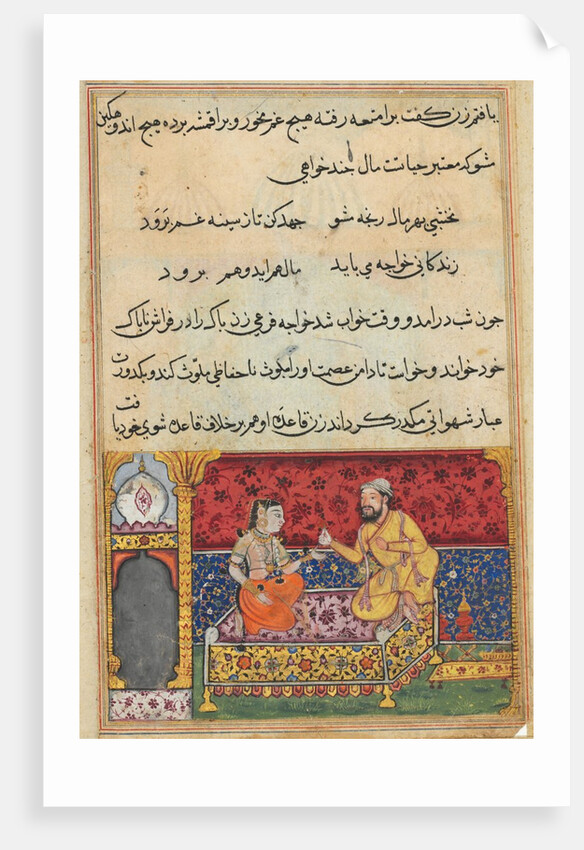 یافتم زن کفت برامتعه رفته هیچ غم مخور و براقمشه برده هیچ اندوه مکین
شو که معتبر حیاتست مال چند خواهی
نخشبی بهر مال رنجه مشو جهد کن تا ز سینه غم برَوَد
زندکانی خواجه می باید مال هم اید و هم برود
جون شب درامد و وقت خواب شد خواجه فرمی زن باک را در فراش ناباک
خود خواند و خواست تا دامن عصمت او را بلوث ناحفاظی ملوّث کند و بکدورت
غبار شهواتی مکدر کرداند زن قاعدهٔ او هم بر خلاف قاعده شوی خود یافت